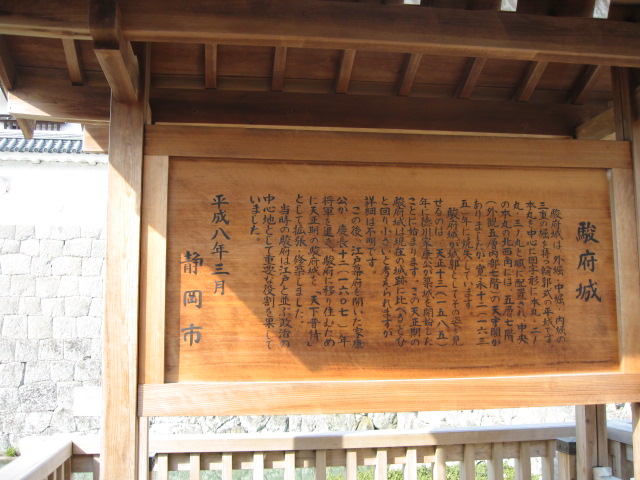 駿府城
駿府城は、外堀、中堀、内堀の
三重の堀を持つ輪郭式の平城です。
本丸を中心に回字形に本丸、二ノ
丸、三ノ丸と順に配置され、中央
の本丸の北西角には、五層七階
(外観五層内部七階)の天守閣が
ありましたが、寛永十二(一六三
五)年に焼失しています。
駿府城が城郭としてその姿を見
せるのは、天正十三(一五八五)
年に徳川家康公が築城を開始した
ことに始まります。この天正期の
駿府城は現在の城跡に比べるとひ
と回り小さいと考えられますが
詳細は不明です。
この後、江戸幕府を開いた家康
公が、慶長十二(一六〇七)年
将軍を退き、駿府に移り住むため
に天正期の駿府城を「天下普請」
として拡張、修築しました。
当時の駿府は江戸と並ぶ政治の
中心地として重要な役割を果して
いました。
平成八年三月
静岡市